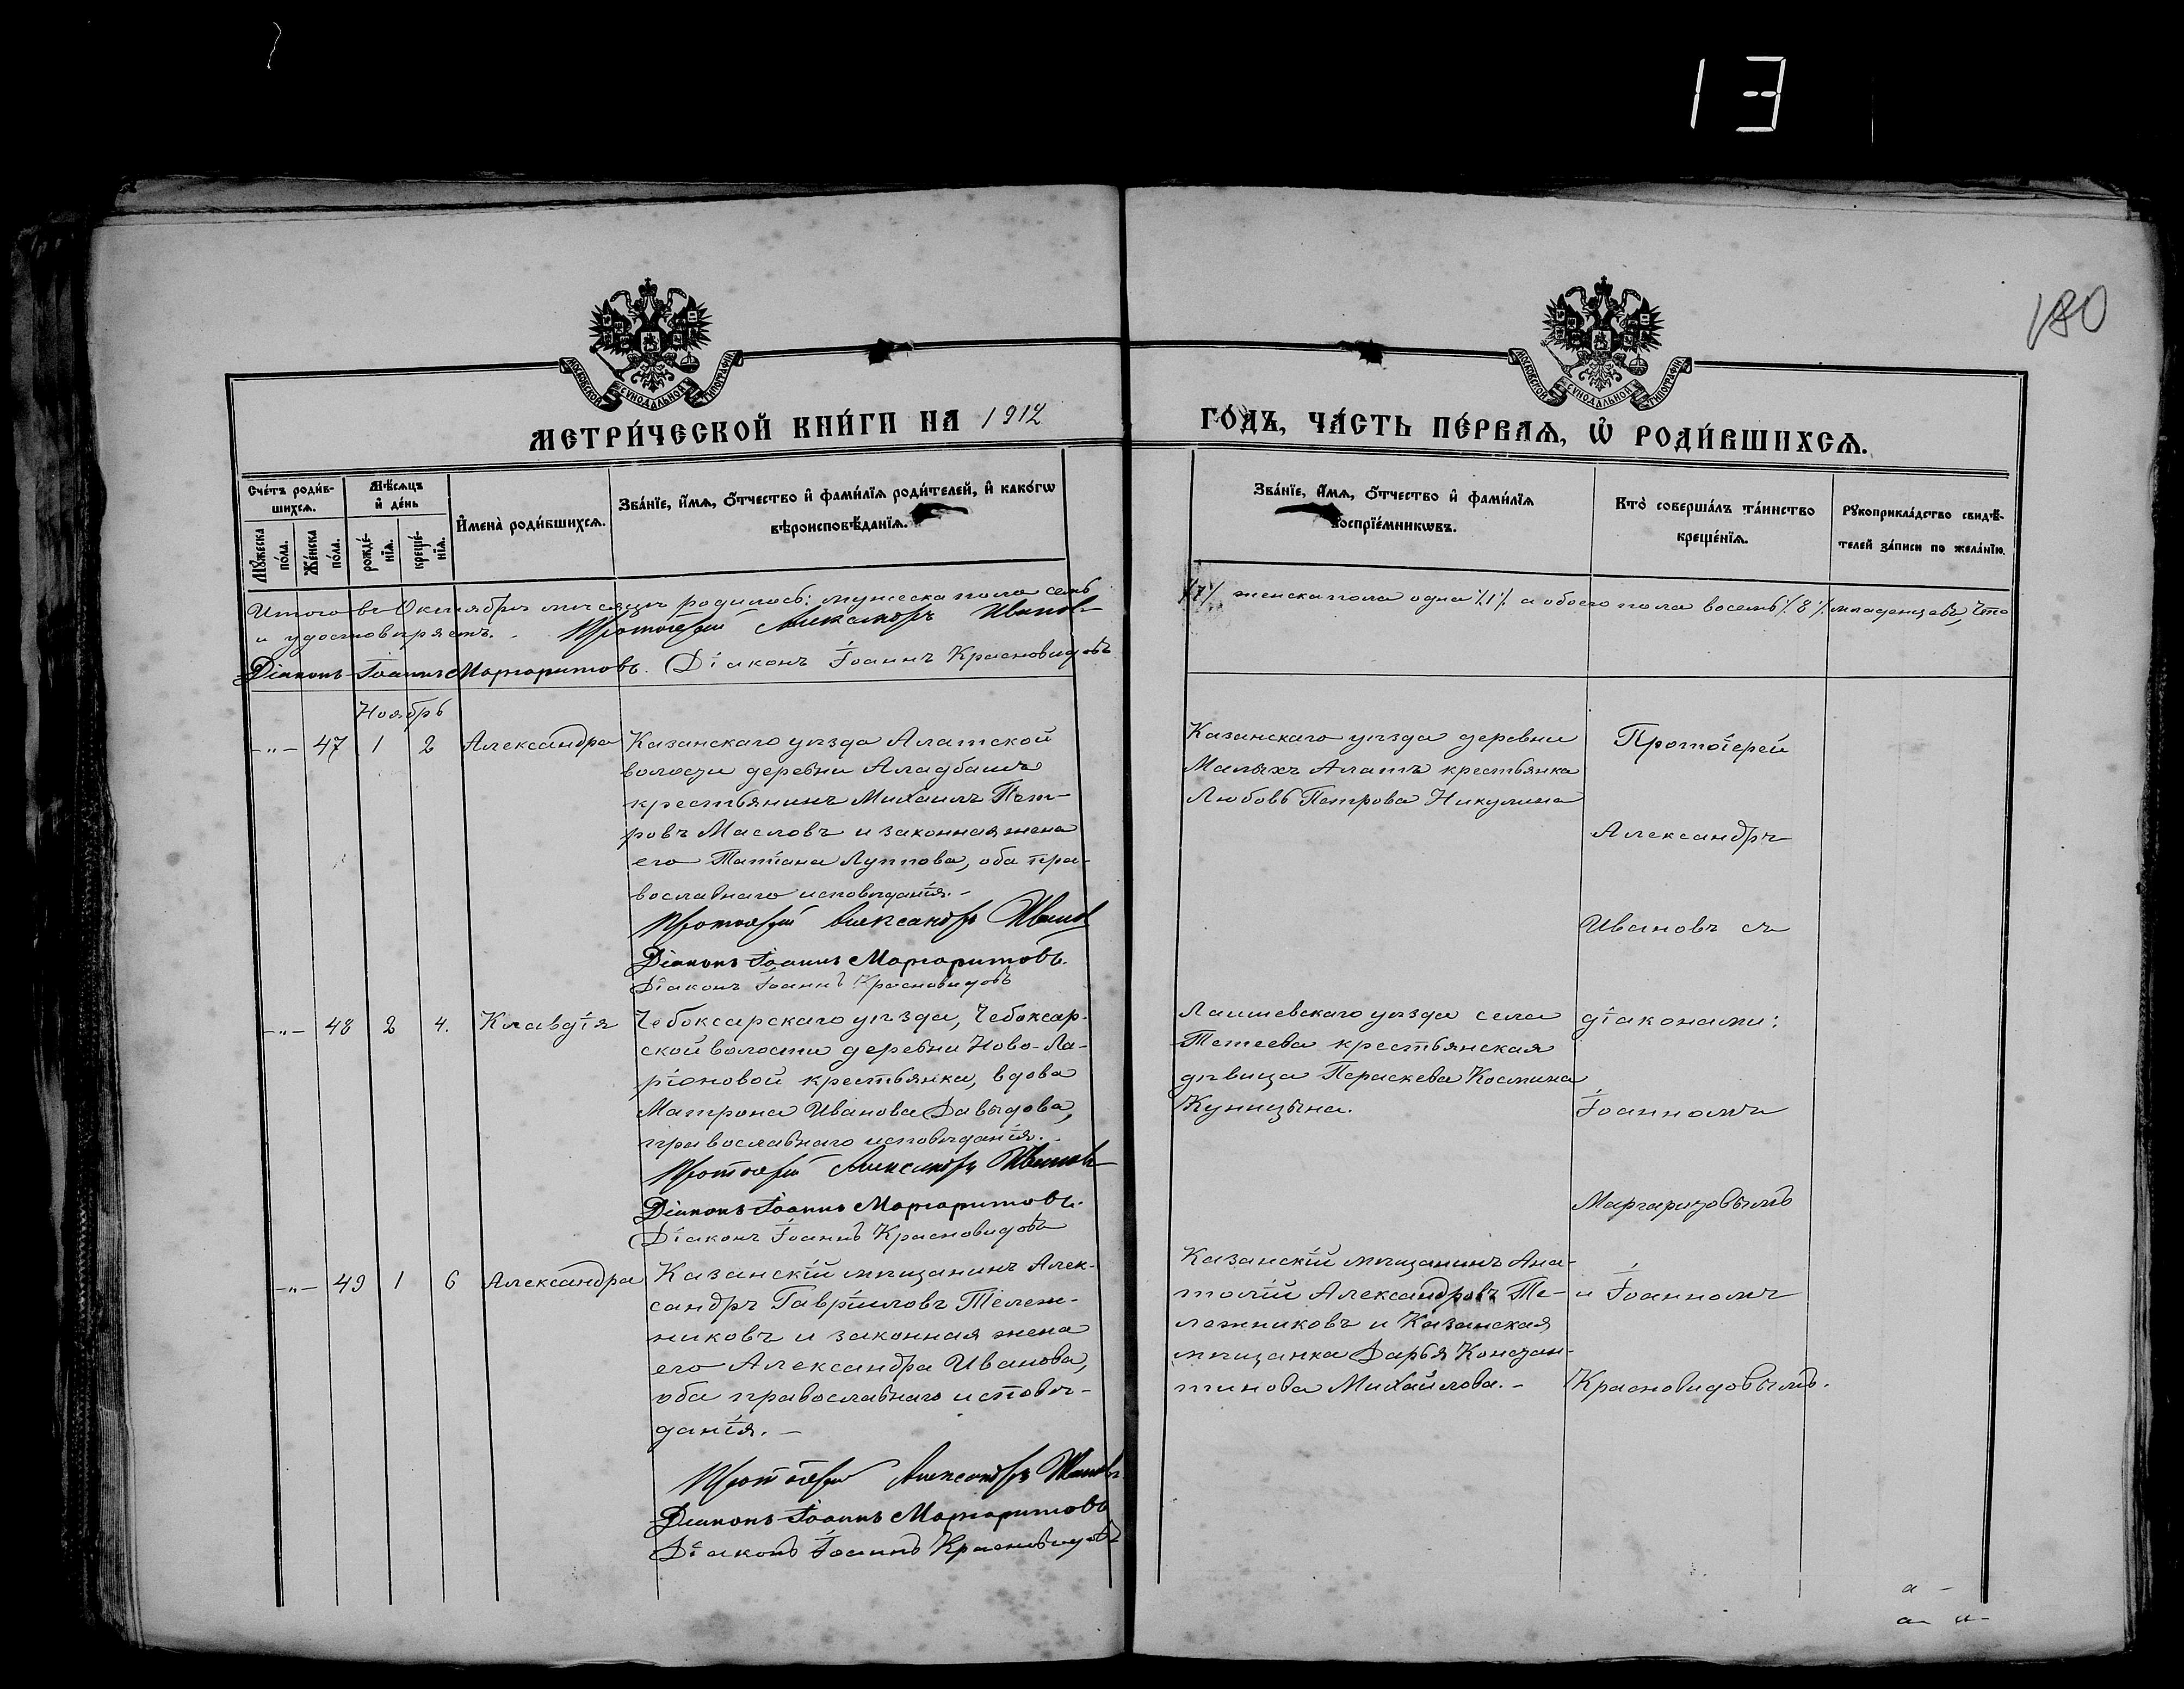 13
180
МОСКОВСКОЙ СУНОДАЛЬНОЙ ТИПОГРАФІИ
МОСКОВСКОЙ СУНОДАЛЬНОЙ ТИПОГРАФІИ
МЕТРИ́ЧЕСКОЙ КНИ́ГИ НА 1912 ГО́ДЪ, ЧА́СТЬ ПЕ́РВАЯ, Ѡ҆ РОДИ́ВШИХСЯ.
Сче́тъ роди́в-
шихся.
Му́жеска по́ла.
Же́нска по́ла.
Мѣ́сяцъ и҆ де́нь
рожде́-
нїя.
креще́-
нїя.
И҆мена̀ роди́вшихся.
Зва́нїе, и҆́мя, ѻ҆́тчество и҆ фами́лїя роди́телей, и҆ како́гѡ
вѣроисповѣ́данїя.
Зва́нїе, и҆́мя, ѻ҆́тчество и҆ фами́лїя
воспрїе́мникѡвъ.
Кто̀ соверша́лъ та́инство
креще́нїя.
Рꙋкоприкла́дство свидѣ́-
телей за́писи по жела́нїю.
Итого въ Октябрѣ мѣсяцѣ родилось: мужеска пола семь /7/ женска пола одна /1/ а обоего пола восемь /8/ младенцевъ, что
и удостовѣряетъ. Протоіерей Александръ Ивановъ
Діаконъ Іоаннъ Маргаритовъ. Діаконъ Іоаннъ Красновидовъ
Ноябрь
-"- 47 1 2 Александра
Казанскаго уѣзда Алатской
волости деревни Аладбашъ
крестьянинъ Михаилъ Пет-
ровъ Масловъ и законная жена
его Татіана Луппова, оба пра-
вославнаго исповѣданія.-
Протоіерей Александръ Ивановъ
Діаконъ Іоаннъ Маргаритовъ.
Діаконъ Іоаннъ Красновидовъ
Казанскаго уѣзда деревни
Малыхъ Алатъ крестьянка
Любовь Петрова Никулина
Протоіерей
Александръ
Ивановъ съ
-"- 48 2 4. Клавдія
Чебоксарскаго уѣзда, Чебоксар-
ской волости деревни Ново-Ла-
ріоновой крестьянка, вдова
Матрона Иванова Давыдова,
православнаго исповѣданія.
Протоіерей Александръ Ивановъ
Діаконъ Іоаннъ Маргаритовъ.
Діаконъ Іоаннъ Красновидовъ
Лаишевскаго уѣзда села
Тетеева крестьянская
дѣвица Параскева Космина
Куницына.
діаконами:
Іоанномъ
Маргаритовымъ
-"- 49 1 6 Александра
Казанскій мѣщанинъ Алек-
сандръ Гавріиловъ Тележ-
никовъ и законная жена
его Александра Иванова,
оба православнаго исповѣ-
данія.-
Протоіерей Александръ Ивановъ
Діаконъ Іоаннъ Маргаритовъ
Діаконъ Іоаннъ Красновидовъ
Казанскій мѣщанинъ Ана-
толій Александровъ Те-
лежниковъ и Казанская
мѣщанка Дарья Констан-
тинова Михайлова.-
и Іоанномъ
Красновидовымъ.